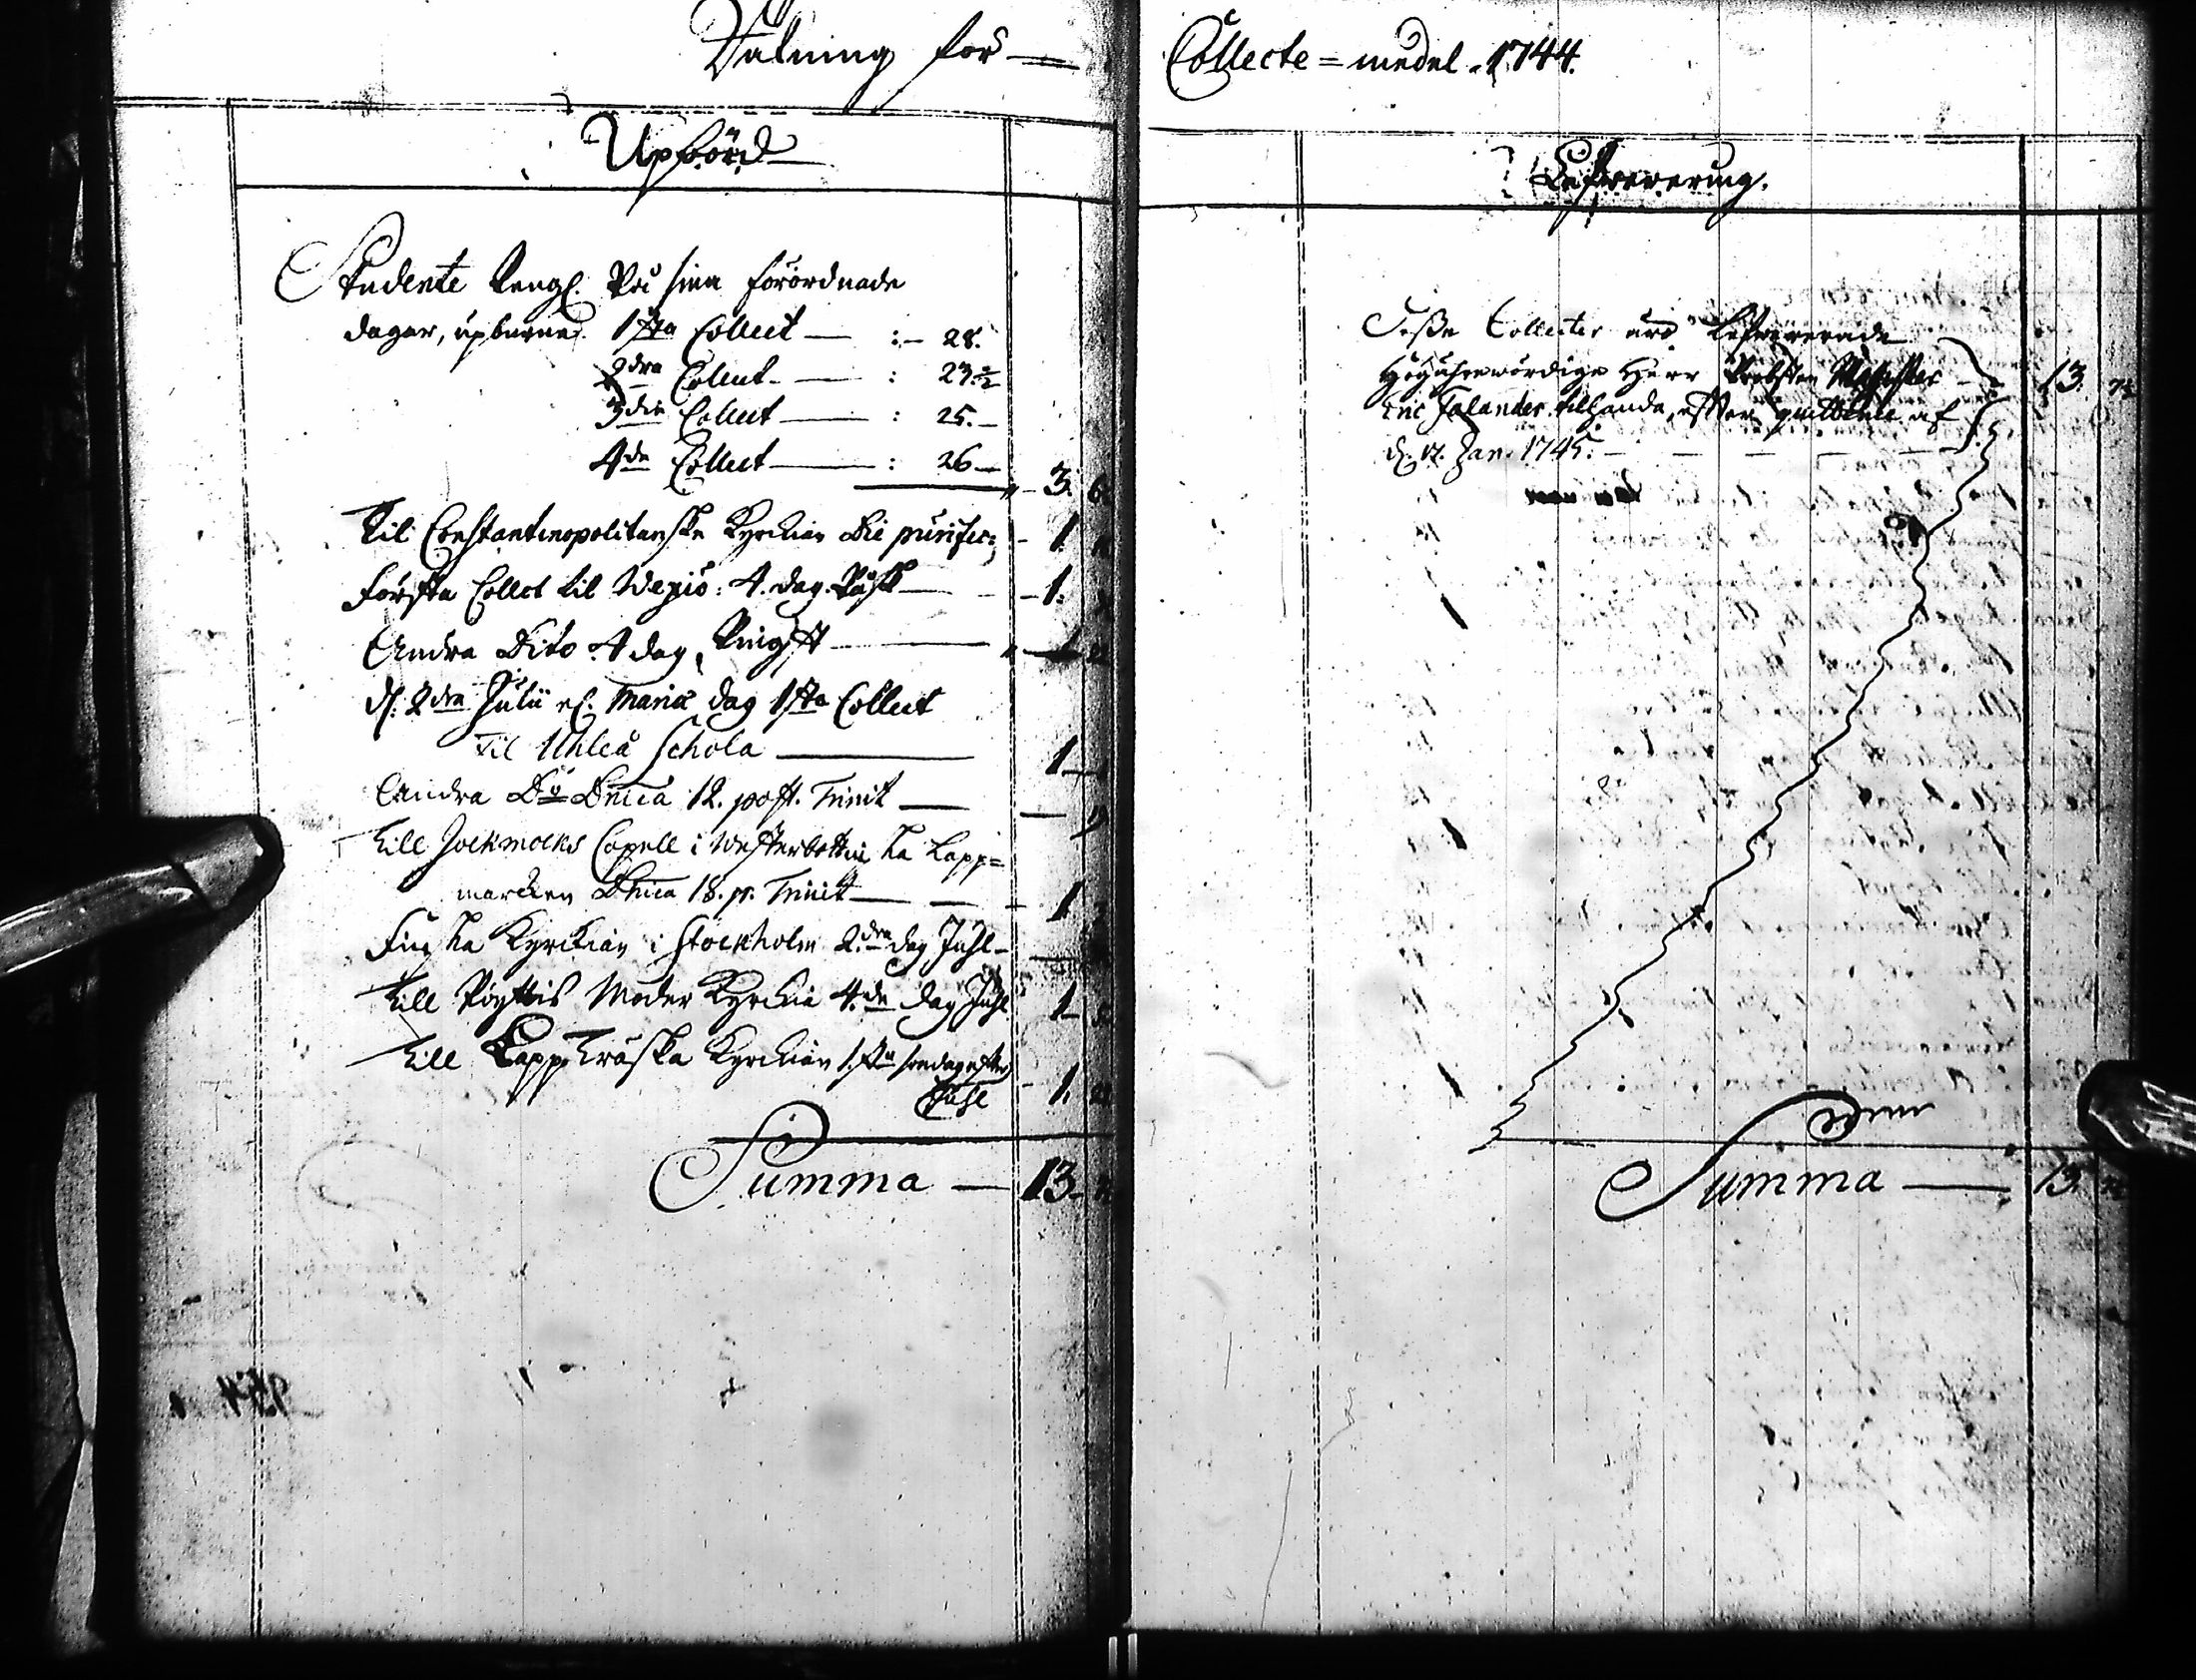 Räkning för Collecte=medel. 1744.
Upbörd
Studente Peng. På sina förordnade
dagar, upburne. 1sta Collect — :— 28.
2dra Collect — : 23½
3die Collect — : 25.—
4de Collect — : 26 —
3. 6.
Til Constantinopolitanska Kyrckian Die purific: — 1.
Första Collect til Wexiö: 4. dag. Påsk — 1.
Andra Dito 4 dag Pingst —
d. 2dra Julii el. Mariæ dag 1sta Collect
Til Uhleå Schola — 1
Andra Do Dnica 12. post. Trinit —
Till Jockmocks Capell i Westerbottniska Lapp=
marcken Dnica 18. p. Trinit — 1
Finska Kyrckian i Stockholm 2dra dag Juhl —
Till Pöyttis Moder Kyrckia 4.de dag Juhl 1
Till Lappträska Kyrckian 1.sta söndag efter
Juhl 1.
Summa — 13.
Lefwerering.
Desse Collecter äro Lefwererade
Högährewördige Herr Probsten 13.
Eric Falander tillhanda, efter quittence af
d. 17. Jan. 1745.
Summa — 13.